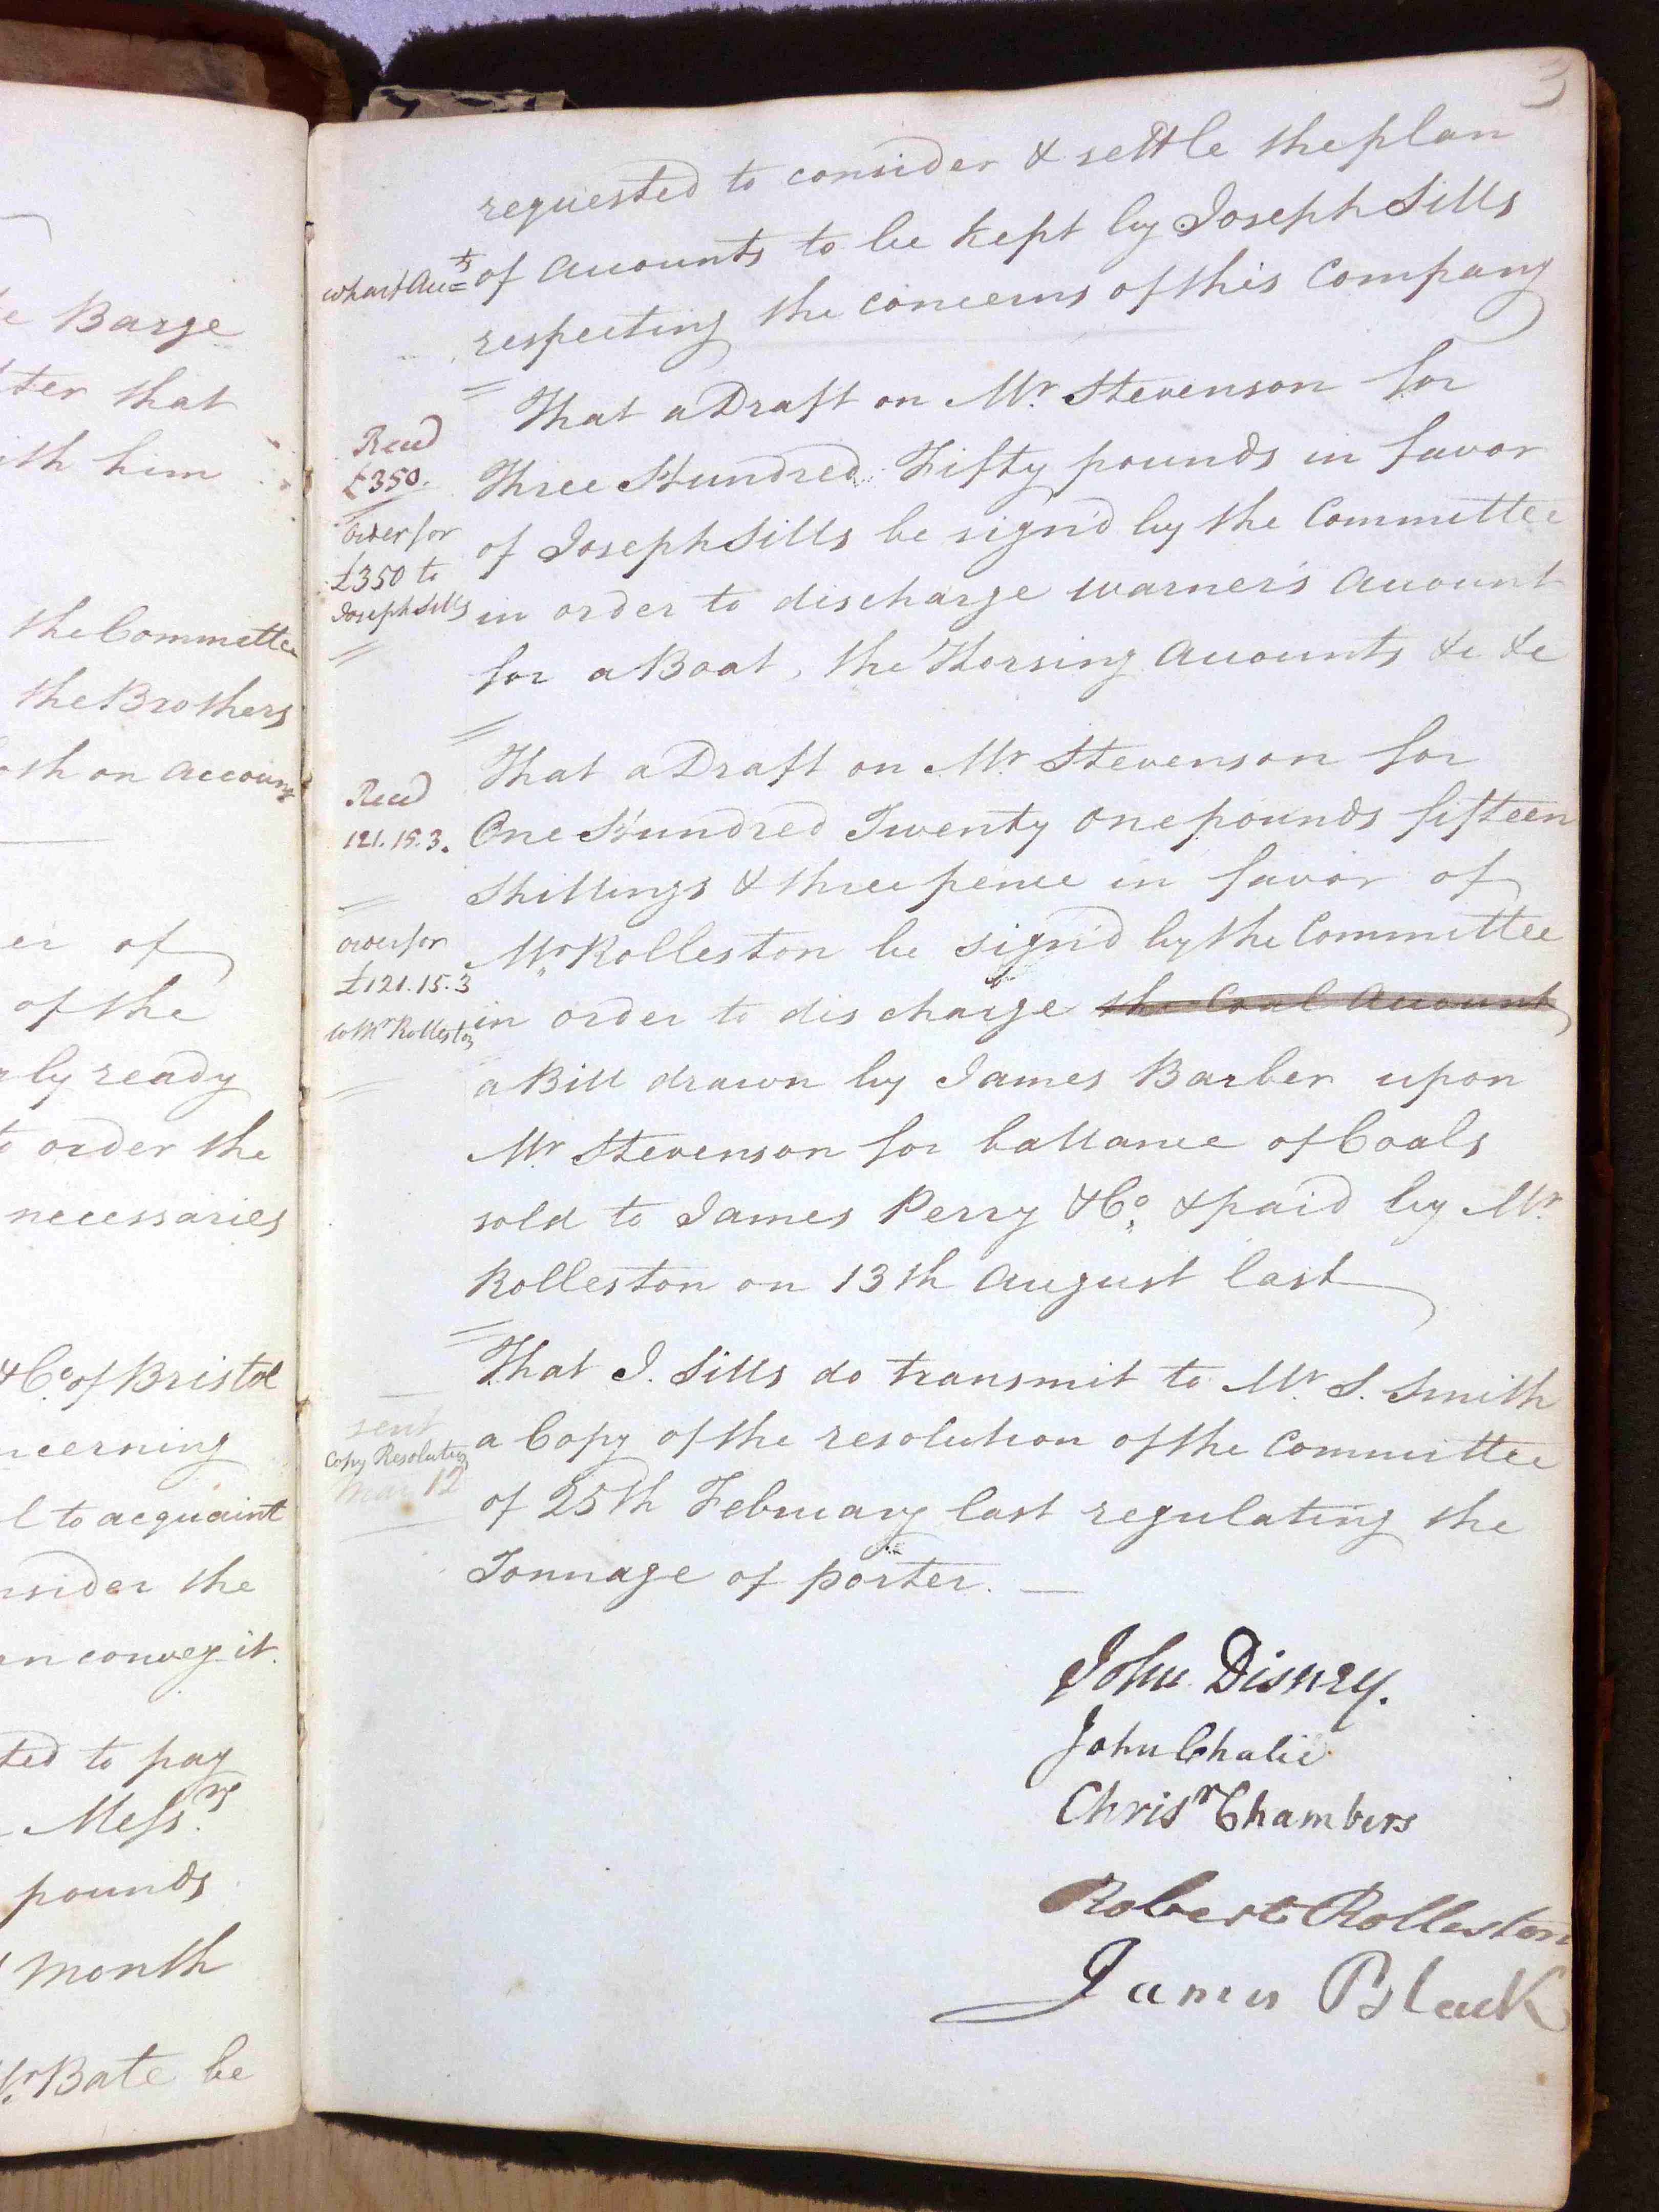 e Barge
tter that
ith him
the Committee
the Brothers
osh on Account
er of
of the
rly ready
to order the
necessaries
& Co. of Bristol
ncerning
l to acquaint
nsider the
an convey it.
ted to pay
Messrs
pounds
Month
Mr. Bate be
3
requested to consider & settle the plan
Wharf Accts
of Accounts to be kept by Joseph Sills
respecting the concerns of this Company
That a Draft on Mr. Stevenson for
Recd
£350.
Three Hundred Fifty pounds in favor
order for
£350 to
Joseph Sills
of Joseph Sills be sign'd by the Committee
in order to discharge Warner's Account
for a Boat, the Horsing Accounts &c &c
That a Draft on Mr. Stevenson for
Recd
121.15.3.
One Hundred Twenty One pounds fifteen
Shillings & three pence in favor of
order for
£121.15.3
to Mr Rolleston
Mr. Rolleston be sign'd by the Committee
in order to discharge the Coal Account
a Bill drawn by James Barber upon
Mr. Stevenson for ballance of Coals
sold to James Perry & Co. & paid by Mr.
Rolleston on 13th August last
That J. Sills do transmit to Mr. S. Smith
sent
Copy Resolution
Mar 12
a Copy of the resolution of the Committee
of 25th February last regulating the
Tonnage of porter. —
John Disney.
John Chalie
Chrisr Chambers
Robert Rolleston
James Black